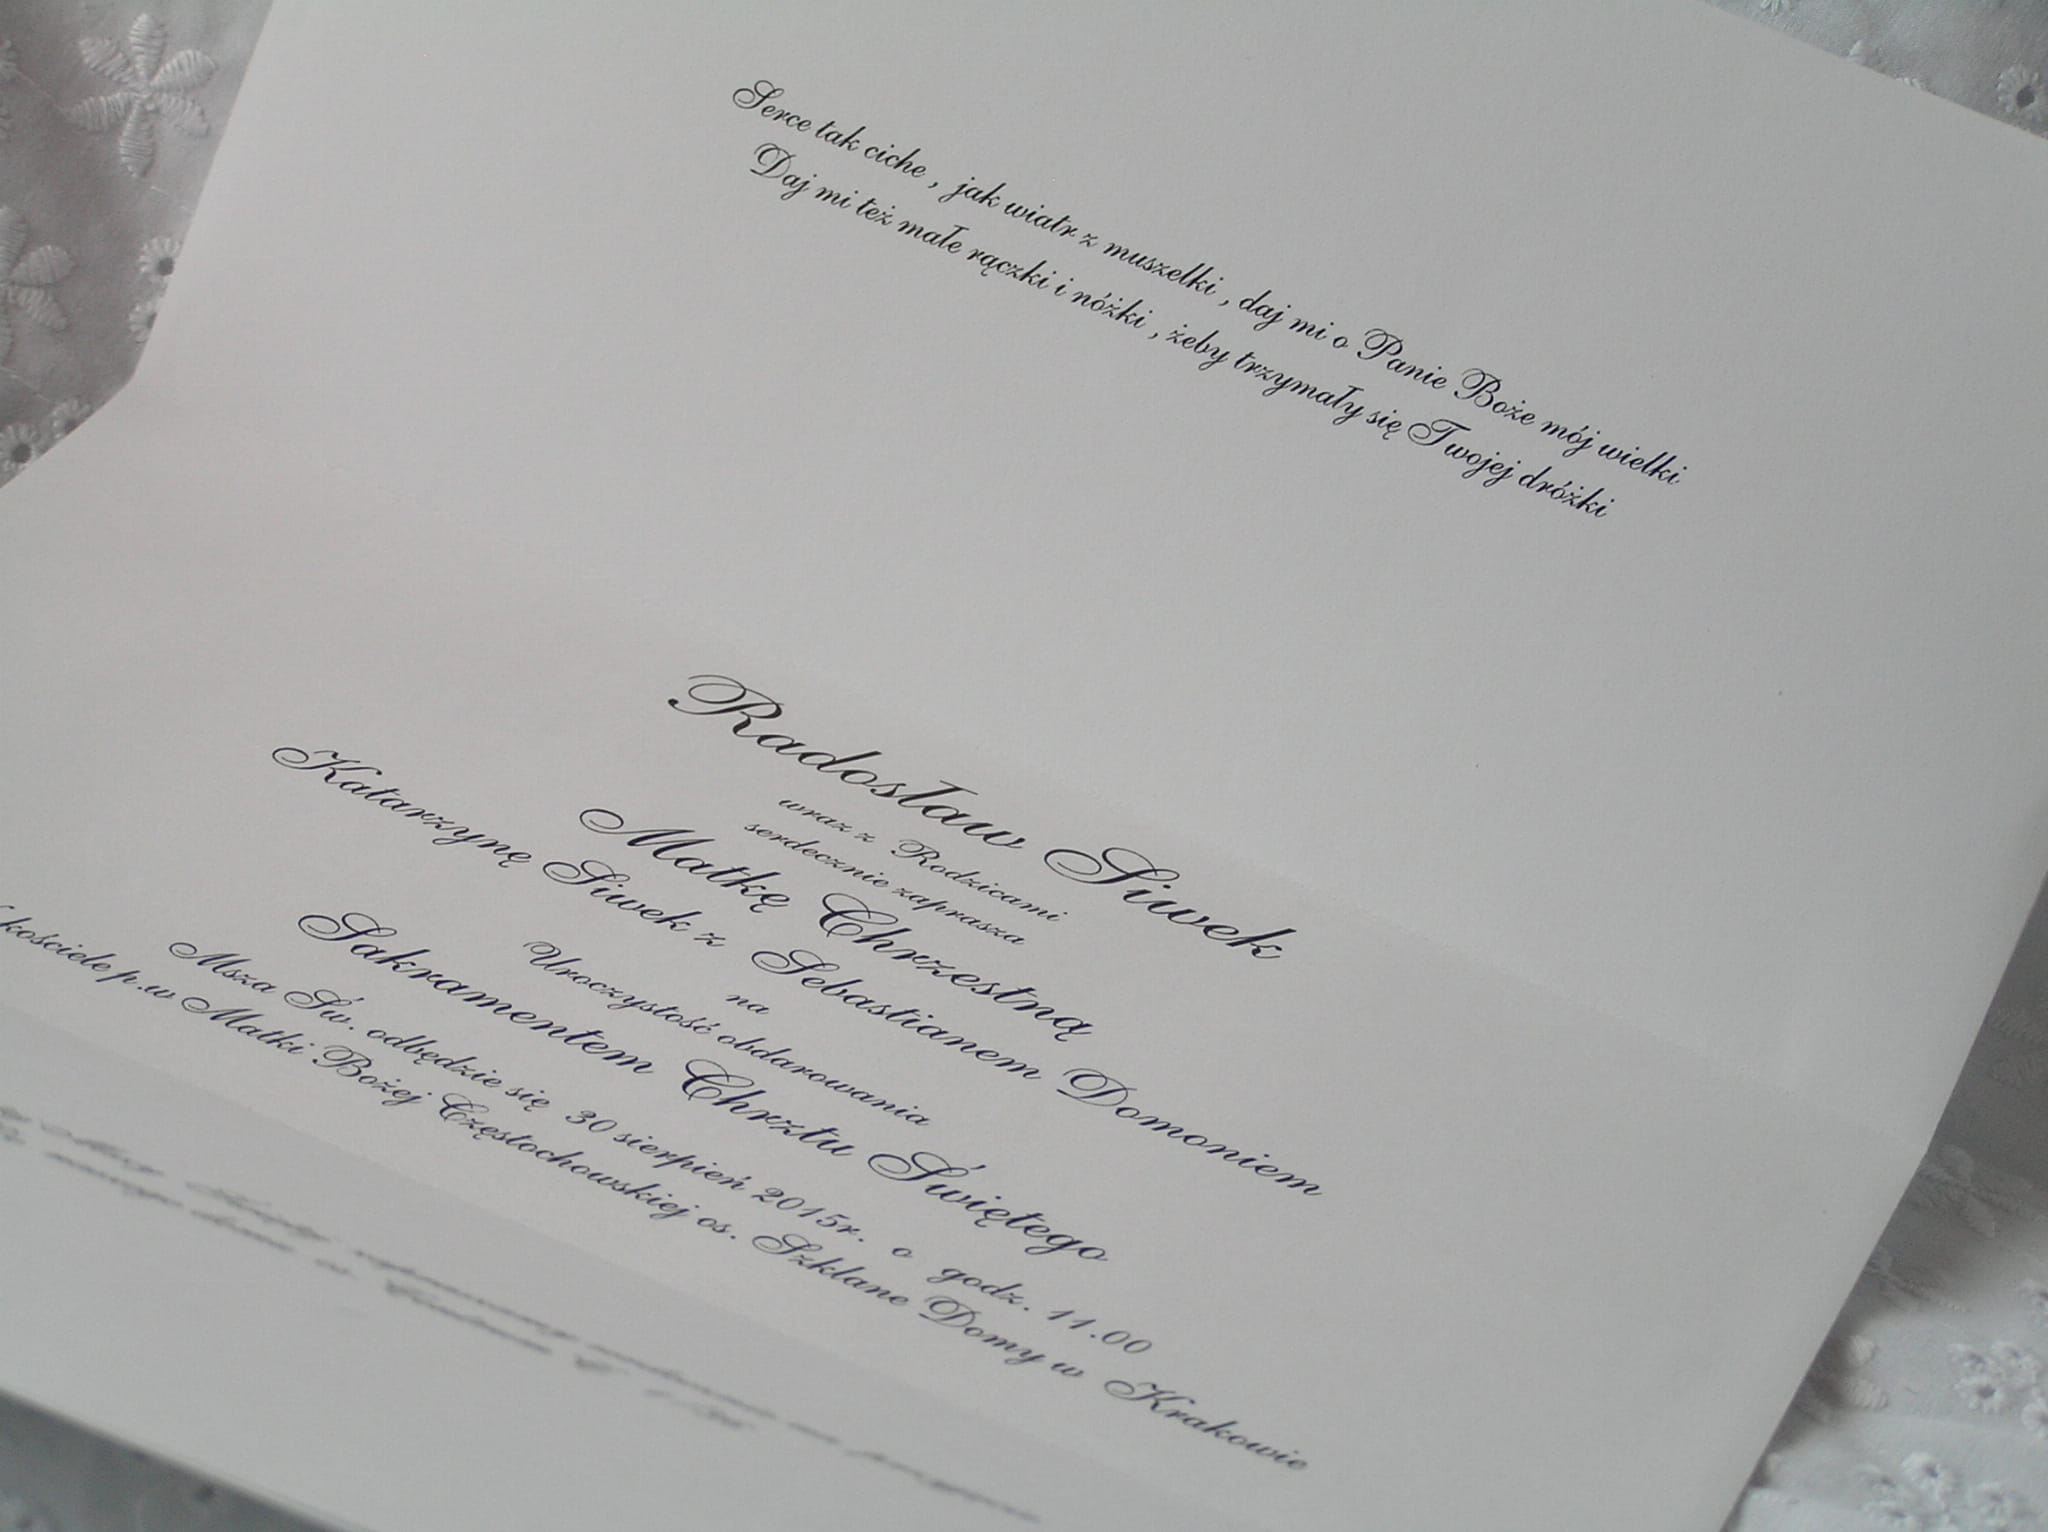 Serce tak ciche , jak wiatr z muszelki , daj mi o Panie Boże mój wielki
Daj mi też małe rączki i nóżki , żeby trzymały się Twojej dróżki
Radosław Siwek
wraz z Rodzicami
serdecznie zaprasza
Matkę Chrzestną
Katarzynę Siwek z Sebastianem Domoniem
na
Uroczystość obdarowania
Sakramentem Chrztu Świętego
Msza Św. odbędzie się 30 sierpień 2015r. o godz. 11.00
kościele p.w Matki Bożej Częstochowskiej os. Szklane Domy w Krakowie
Mszy zapraszamy na
naszego domu w